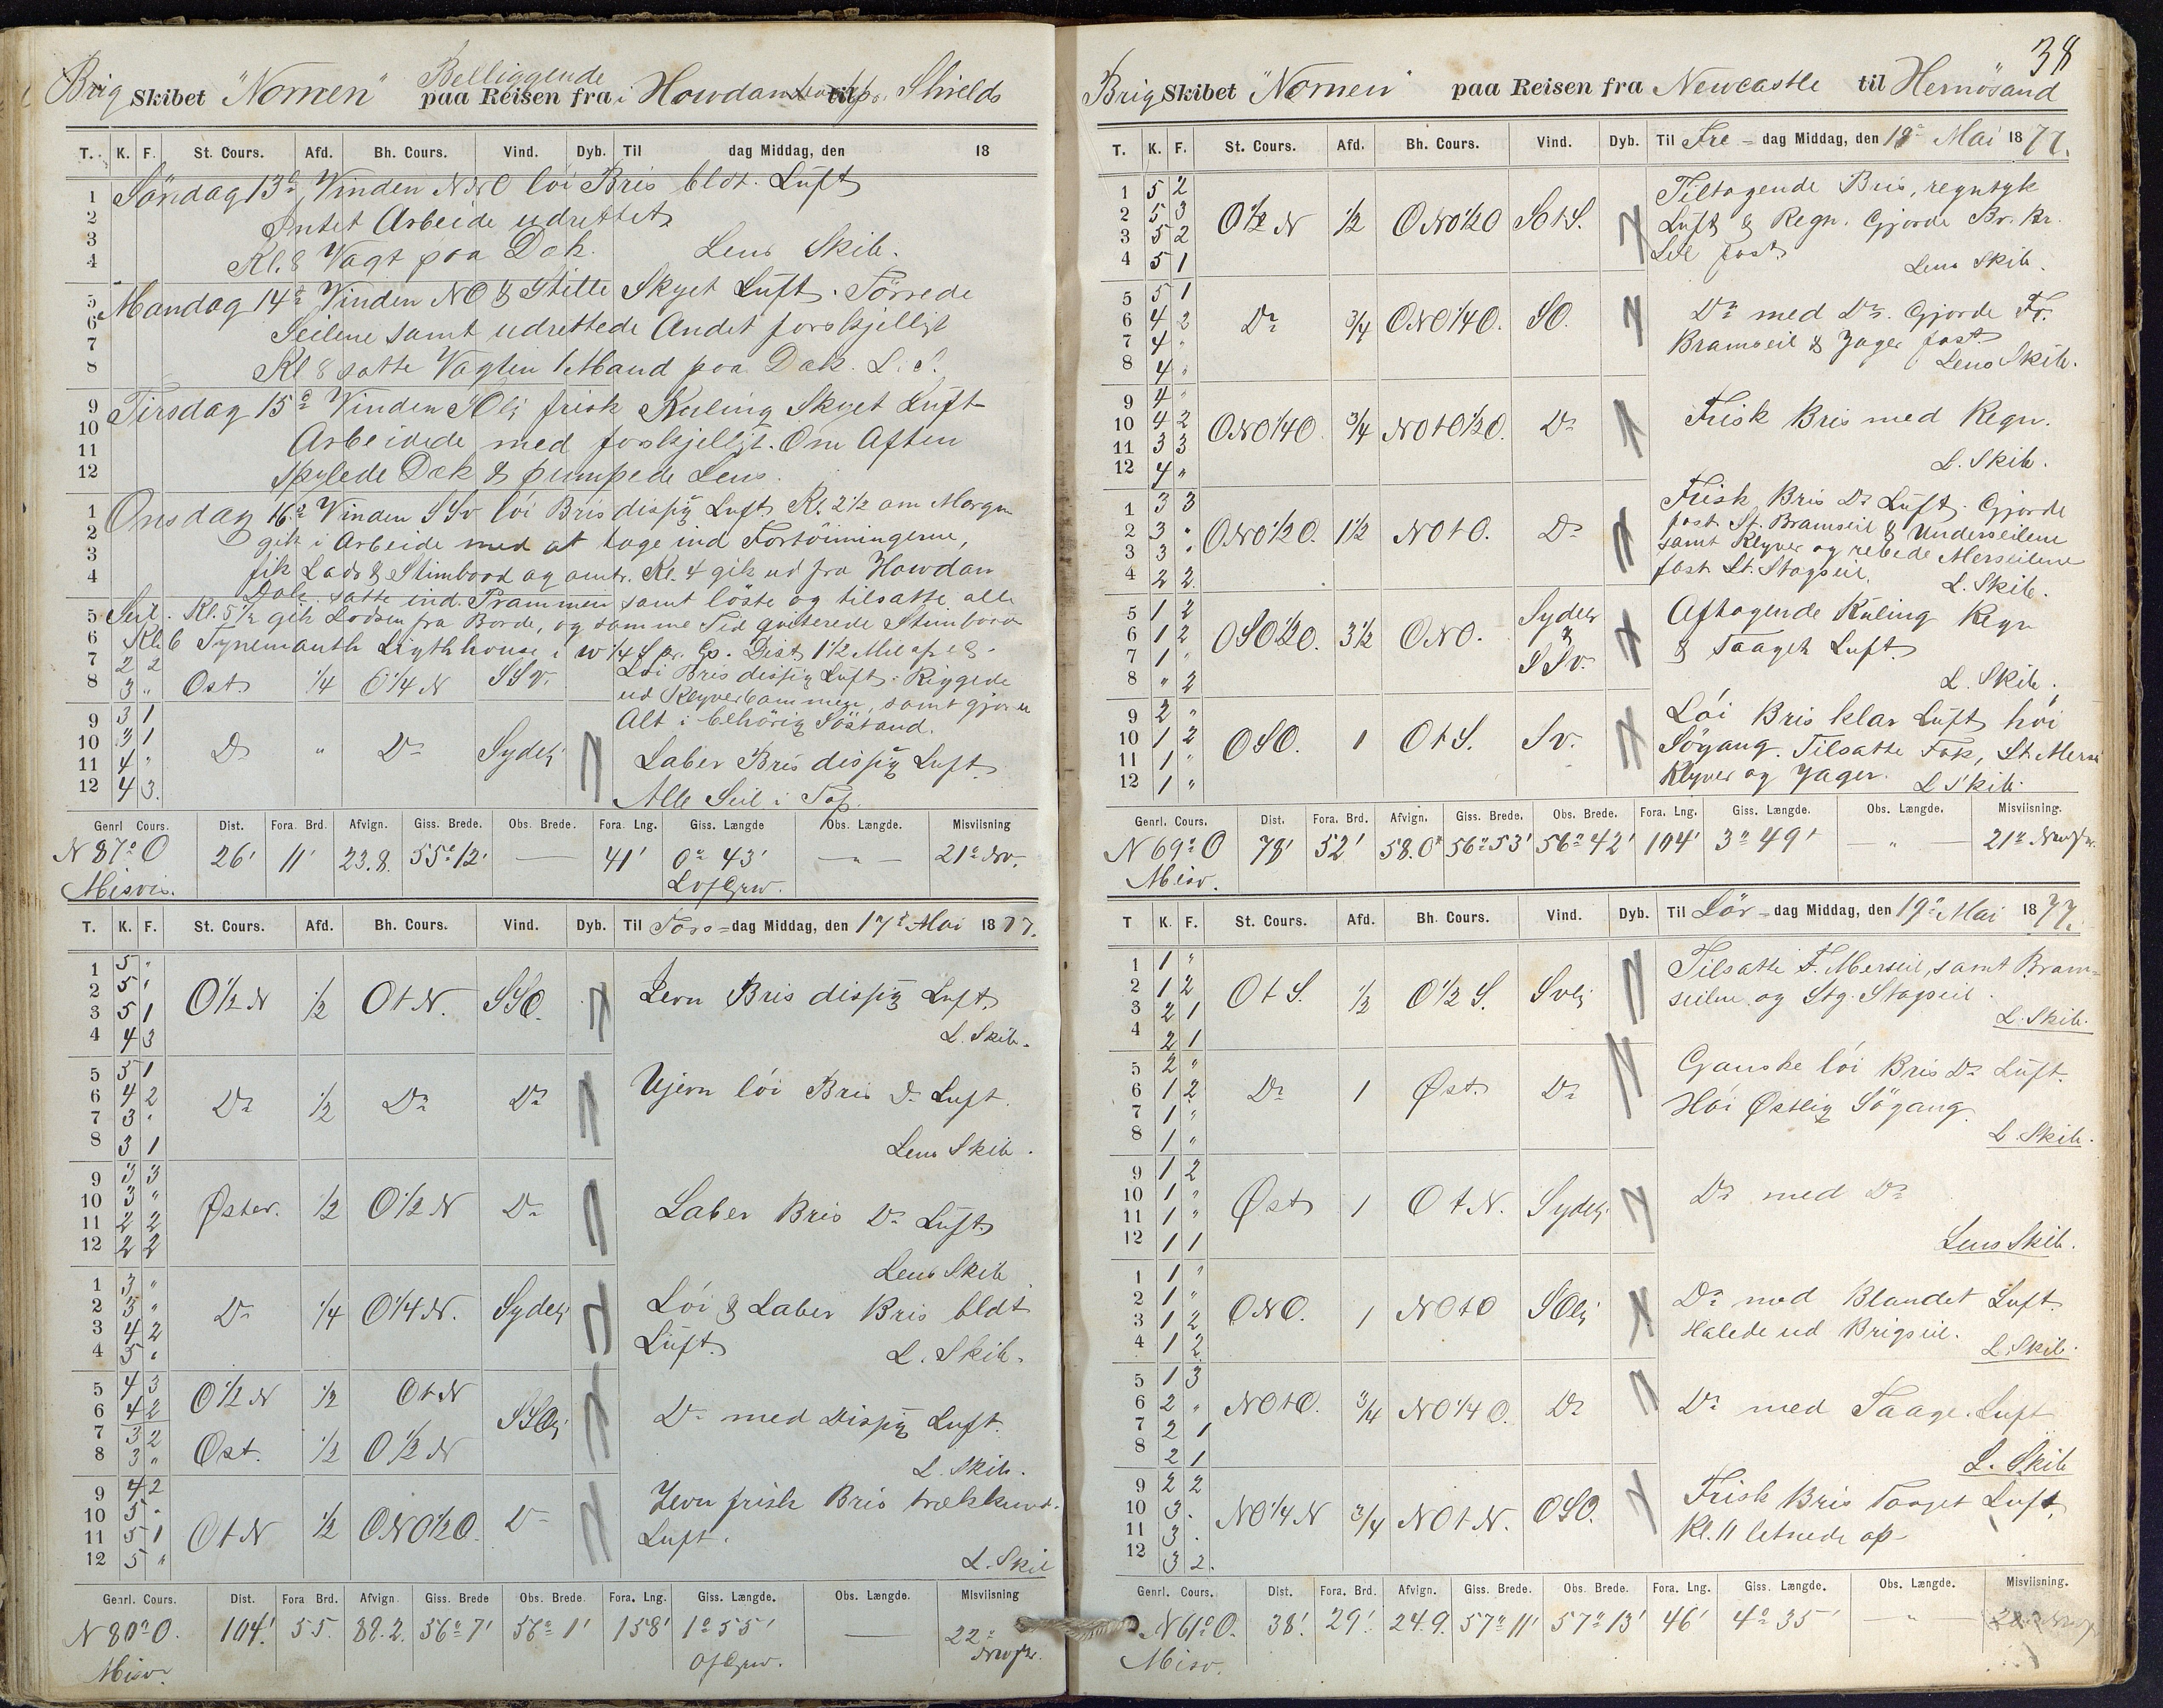 Brig Skibet "Nornen" Belliggende paa Reisen fra i Howdan til Shields
T. K. F. St. Cours. Afd. Bh. Cours. Vind. Dyb. Til dag Middag, den 18
1 Söndag 13de Vinden NNO löi Bris bldt. Luft
2 Intet Arbeide udrettet
3 Kl. 8 Vagt paa Dæk. Lens Skib.
4
5 Mandag 14de Vinden NO & Stille Skyet Luft. Törrede
6 Seilene samt udrettede Andet forskjelligt
7
8 Kl 8 satte Vagten 1 Mand paa Dæk. L. S.
9 Tirsdag 15de Vinden SOlig frisk Kuling Skyet Luft
10 Arbeidede med forskjelligt. Om Aften
11
12 Spylede Dæk & pumpede Lens.
1 Onsdag 16de Vinden SSv löi Bris disig Luft. Kl. 2 1/2 om Morgen
2 gik i Arbeide med at tage ind Fortöiningerne,
3
4 fik Lods & Stimbaad og Kl. 4 gik ud fra Howdan
Dok. satte ind Prammen samt löste og tilsatte alle
5 Seil. Kl. 5 1/2 gik Lodsen fra Borde, og samme Tid qviterede Stimbaad
6 Kl. 6 Tynemauth Ligthhouse i W 1/4 S pr. Cp. Dist. 1 1/2 Mil
7 2 2
8 3 " Ost 1/4 O 1/4 N SSv. Löi Bris disig Luft. Riggede
ud Klyverbommen, samt gjorde
Alt i behörig Söstand.
9 3 1
10 3 1 Do " Do Sydlig Laber Bris disig Luft
11 4 "
12 4 3. Alle Seil i Top.
Genrl Cours. Dist. Fora. Brd. Afvign. Giss. Brede. Obs. Brede. Fora. Lng. Giss. Længde Obs. Længde. Misviisning
N 87° O 26' 11' 23.8. 55° 12' — 41' 0° 43' — " — 21° Nv.
Misvis.
T. K. F. St. Cours. Afd. Bh. Cours. Vind. Dyb. Til Tors-dag Middag, den 17de Mai 1877.
1 5 "
2 5 " O 1/2 N 1/2 O t N. SSO. Jevn Bris disig Luft
3 5 1
4 4 3 L. Skib.
5 5 1
6 4 2 Do 1/2 Do Do Ujevn löi Bris Do Luft.
7 3 "
8 3 1 Lens Skib.
9 3 3
10 3 " Øster. 1/2 O 1/2 N Do Laber Bris Do Luft
11 2 2
12 2 2 Lens Skib
1 3 "
2 3 " Do 1/4 O 1/4 N. Sydlig Löi & Laber Bris bldt
3 4 2 Luft.
4 5 " L. Skib.
5 4 3 O 1/2 N 1/2 O t N
6 4 2 SSOlig Do med Disig Luft.
7 3 2
8 3 " Ost. 1/2 O 1/2 N L. Skib.
9 4 2
10 5 " O t N 1/2 ONO 1/2 O. Do Jevn frisk Bris trækkend.
11 5 1 Luft.
12 5 " L. Skib
Genrl. Cours. Dist. Fora Brd. Afvign. Giss. Brede Obs. Brede. Fora. Lng. Giss. Længde. Obs. Længde. Misviisning
N 80° O. 104' 55. 88.2. 56° 7' 56° 1' 158' 1° 55' — 22°
Misv.
38
Brig Skibet "Nornen" paa Reisen fra Newcastle til Hernösand
T. K. F. St. Cours. Afd. Bh. Cours. Vind. Dyb. Til Fre-dag Middag, den 18de Mai 1877.
1 5 2 Tiltagende Bris, regntyk
2 5 3 O 1/2 N 1/2 ONO 1/2 O SO t S. Luft & Regn. Gjorde Br. Br.
3 5 2 Seil fast
4 5 1 Lens Skib.
5 5 1
6 4 2 Do 3/4 ONO 1/4 O. SO. Do med Do. Gjorde For.
7 4 " Bramseil & Jager fast
8 4 " Lens Skib.
9 4 "
10 4 2 ONO 1/4 O. 3/4 NO t O 1/2 O. Do Frisk Bris med Regn.
11 3 3
12 4 " L. Skib.
1 3 3 Frisk Bris Do Luft. Gjorde
2 3 " ONO 1/2 O. 1 1/2 NO t O. Do fast St. Bramseil & Underseilene
3 3 " samt Klyver og rebede Merseilene
4 2 2 fast St. Stagseil. L. Skib.
5 1 2 Sydlig Aftagende Kuling Regn
6 1 2 OSO 1/2 O. 3 1/2 ONO. & & Taaget Luft
7 1 " SSv.
8 " 2 L. Skib.
9 2 " Löi Bris klar Luft höi
10 1 2 OSO. 1 O t S. Sv. Sögang. Tilsatte Fok, St. Mers
11 1 "
12 1 " Klyver og Jager. L Skib.
Genrl. Cours. Dist. Fora. Brd. Afvign. Giss. Brede. Obs. Brede. Fora. Lng. Giss. Længde. Obs. Længde. Misviisning.
N 69° O 78' 52' 58.0' 56° 53' 56° 42' 104' 3° 49' — " — 21°
Misv.
T K. F. St. Cours. Afd. Bh. Cours. Vind. Dyb. Til Lör-dag Middag, den 19de Mai 1877.
1 1 " Tilsatte F. Merseil, samt Bram-
2 1 2 O t S. 1/2 O 1/2 S. Svlig seilene og Stg. Stagseil.
3 2 1
4 2 1 L. Skib.
5 2 " Ganske löi Bris Do Luft.
6 1 2 Do 1 Øst. Do
7 1 " Höi Østlig Sögang
8 1 " L. Skib.
9 1 2
10 1 " Øst 1 O t N. Sydlig. Do med Do
11 1 "
12 1 1 Lens Skib.
1 1 "
2 1 " ONO. 1 NO t O SOlig Do med Blandet Luft.
3 1 2 Halede ud Brigseil.
4 1 2 L. Skib.
5 1 3
6 2 " NO t O. 3/4 NO 1/4 O. Do Do med Taage. Luft
7 2 1
8 2 1 L. Skib
9 2 2
10 3 . NO 1/4 N 3/4 NO t N. OSO. Frisk Bris Taaget Luft,
11 3 . Kl. 11 letnede op
12 3 2.
Genrl. Cours. Dist. Fora. Brd. Afvign. Giss. Brede. Obs. Brede. Fora. Lng. Giss. Længde. Obs. Længde. Misviisning.
N 61° O. 38'. 29'. 24.9. 57° 11' 57° 13' 46' 4° 35' — " —
Misv.